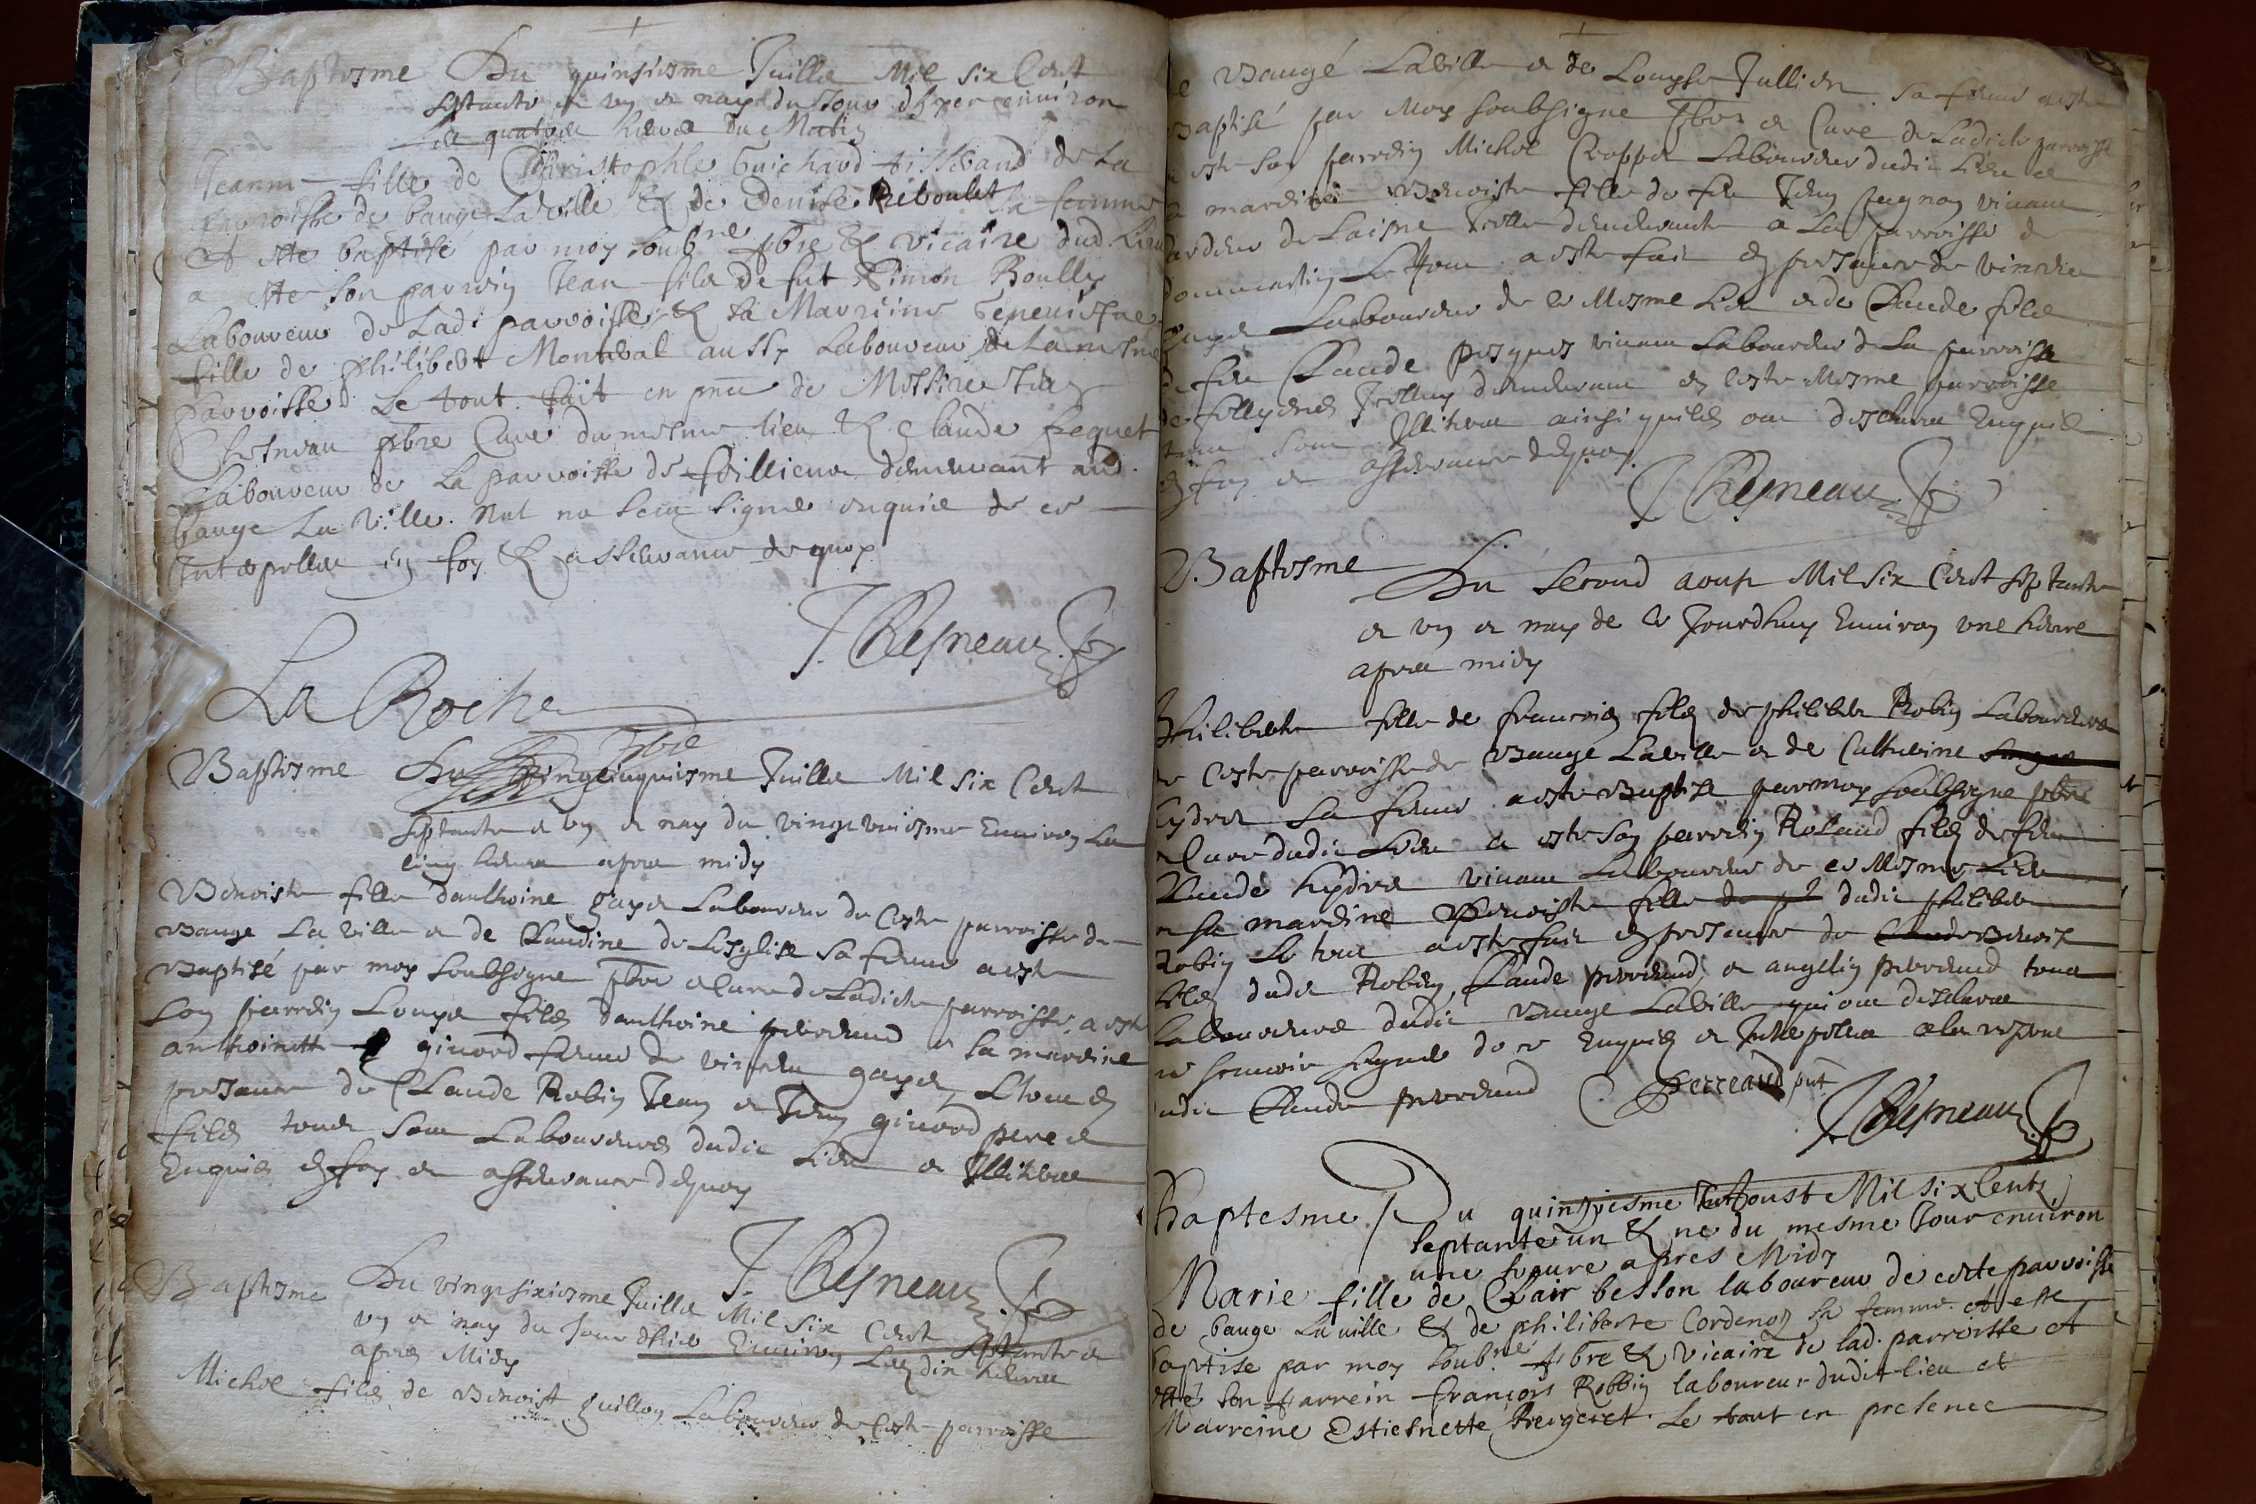 Baptesme Du quinsiesme Juillet Mil six Cent
septante et un et nay du Jour dhyer environ
les quatre heures du Matin
Jeanne fille de Christophle Guichard tisserand de la
parroisse de baugé La ville & de Denise Reboulet sa femme
A este baptisé par moy soubné pbre & vicaire dud. lieu
a este son parrein Jean fils de fut Simon Boully
Laboureur de Lad. parroisse & sa Marreine
fille de philibert Monteval aussy Laboureur de la mesme
parroisse Le tout fait en pnce de Messire Jean
Chesneau pbre Curé du mesme lieu & Claude frequet
Laboureur de La parroisse de foillieux demeurant aud.
bauge La Ville. Nul na sceu signé enquis de ce
Interpellez En foy & asseurance de quoy
J Chesneau
La Roche
pbre
Baptesme Du vingt cinquiesme Juillet Mil six Cent
septante et un et nay du vingt uniesme Environ Les
cinq heures apres midy
Benoiste fille danthoine gayet Laboureur de Ceste parroisse de
Bauge La Ville et de Claudine de Lesglise sa femme a este
Baptisé par moy soubsigné pbre et Curé de Ladicte parroisse, a este
son parrein Louys fils danthoine perreaud et sa mareine
anthoinette givord femme de gayet, Le tout en
presence de Claude Robin Jean et Jean givord pere et
fils tous sont Laboureurs dudit Lieu et Illiteres
Enquis En foy et asseurance de quoy
J. Chesneau
Baptesme Du vingt sixiesme Juillet Mil six Cent septante et
un et nay du Jour dhier Environ Les dix heures
apres Midy
Michel fils de Benoist guillon Laboureur de Ceste parroisse
de Baugé La Ville et de Louyse Jullien sa femme a este
Baptisé par Moy soubsigné pbre et Curé de Ladicte parroisse
a este son parrein Michel Laboureur dudit Lieu et
sa mareine Benoiste fille de feu Jean vivant
demeurante a La parroisse de
Le tout a este fait En presence de
gayet Laboureur de ce Mesme Lieu et de Claude fils
de feu Claude vivant Laboureur de La parroisse
de demeurant En ceste Mesme parroisse
tous sont Illiteres ainsi quils ont desclaré Enquis
En foy et asseurance de quoy
J Chesneau
Baptesme
Du second aoust Mil six Cent septante
et un et nay de ce Jourdhuy Environ une heure
apres midy
Philiberte fille de francois fils de philibert Robin Laboureur
de Ceste parroisse de Bauge La ville et de Catherine
hydret sa femme a este Baptisé par moy soubsigné pbre
et Curé dudit Lieu a este son parrein Roland fils de feu
Claude hydret vivant Laboureur de ce Mesme Lieu
et sa mareine Benoiste fille dudit philibert
Robin Le tout a este fait En presence de Benoist
fils dudit Robin, Claude perreaud et angelin perreaud tous
Laboureurs dudit Bauge La Ville qui ont desclaré
ne scavoir signer de ce Enquis et Interpellez a la reserve
dudit Claude perreaud C. Perreaud pnt
J. Chesneau
Baptesme. Du quinziesme Aoust Mil six cents
septante un & ne du mesme Jour environ
une heure apres Midy
Marie fille de Clair besson laboureur de ceste parroisse
de bauge la ville & de philiberte Cordenod sa femme a este
baptise par moy soubné pbre & vicaire de lad. parroisse et
esté son parrein François Robbin laboureur dudit lieu et
Marreine Estiennette Brergeret. Le tout en presence